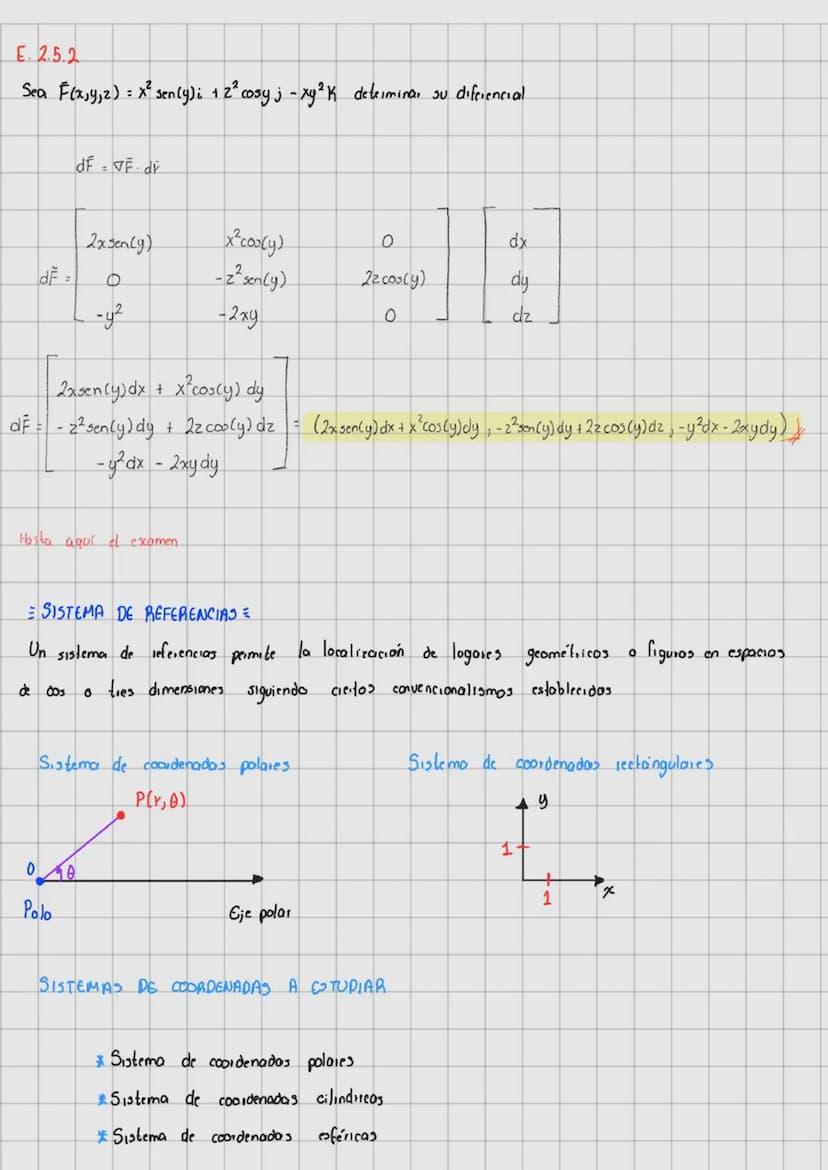 E. 2.5.2
Sea F̄(x,y,z) = x² sen(y)i + z² cosy j - xy² K determinar su diferencial
dF̄ = ∇F̄ · dr̄
2x sen(y) x²cos(y) 0 dx
dF̄ = 0 -z²sen(y) 2z cos(y) dy
-y² -2xy 0 dz
2xsen(y)dx + x²cos(y) dy
dF̄ = - z²sen(y)dy + 2z cos(y) dz = (2xsen(y)dx + x²cos(y)dy , -z²sen(y)dy + 2z cos(y)dz , -y²dx - 2xydy)
-y²dx - 2xydy
Hasta aquí el examen
SISTEMA DE REFERENCIAS
Un sistema de referencias permite la localización de logares geométricos o figuras en espacios
de dos o tres dimensiones siguiendo ciertos convencionalismos establecidos
Sistema de coordenadas polares Sistema de coordenadas rectángulares
P(r, θ) y
1
0 θ
x
1
Polo Eje polar
SISTEMAS DE COORDENADAS A ESTUDIAR
* Sistema de coordenadas polares
* Sistema de coordenadas cilindricas
* Sistema de coordenadas esféricas